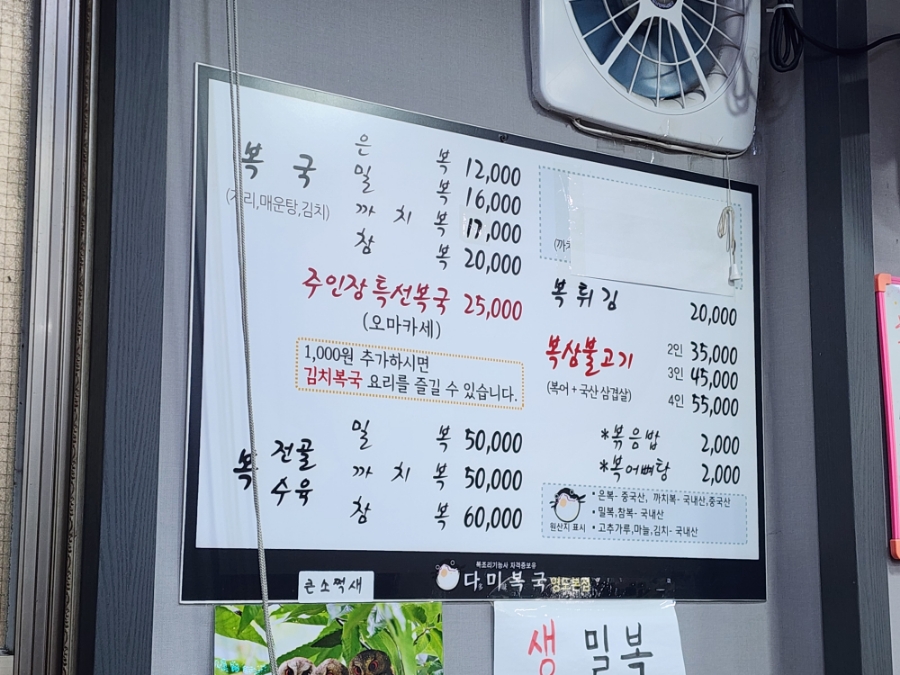 복국
(지리,매운탕,김치)
은복 12,000
밀복 16,000
까치복 17,000
참복 20,000
주인장특선복국 25,000
(오마카세)
1,000원 추가하시면
김치복국 요리를 즐길 수 있습니다.
복 전골 수육
밀복 50,000
까치복 50,000
참복 60,000
(까치
복튀김 20,000
복삼불고기
(복어+국산 삼겹살)
2인 35,000
3인 45,000
4인 55,000
*볶음밥 2,000
*복어뼈탕 2,000
원산지 표시
• 은복- 중국산, 까치복- 국내산,중국산
• 밀복,참복- 국내산
• 고추가루,마늘,김치- 국내산
복조리기능사 자격증보유
다미복국 명도본점
큰소쩍새
생 밀복